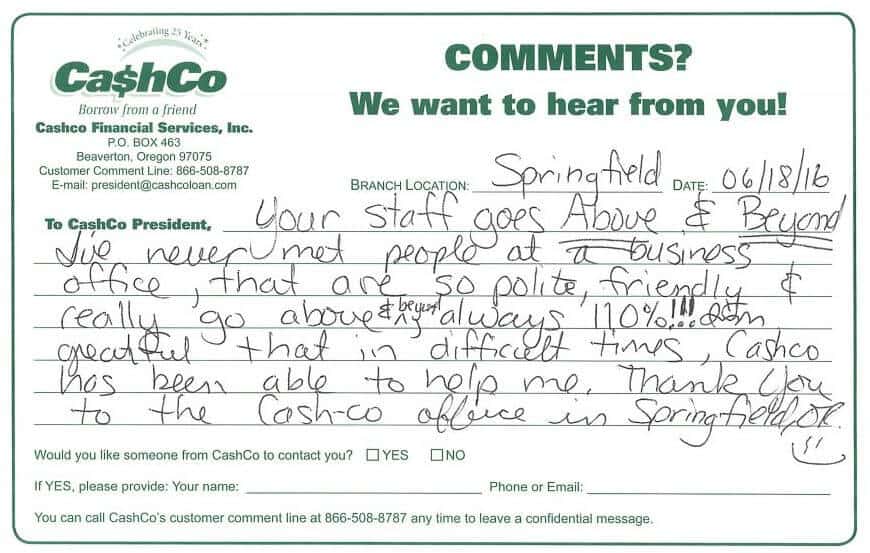 Celebrating 25 Years
Ca$hCo
Borrow from a friend
Cashco Financial Services, Inc.
P.O. BOX 463
Beaverton, Oregon 97075
Customer Comment Line: 866-508-8787
E-mail: president@cashcoloan.com
COMMENTS?
We want to hear from you!
BRANCH LOCATION: Springfield DATE: 06/18/16
To CashCo President, Your staff goes Above & Beyond
I've never met people at a business
office, that are so polite, friendly &
really go above & beyond always 110%!!! I am
greatful that in difficult times, Cashco
has been able to help me. Thank you
to the Cash-co office in Springfield, OR.
Would you like someone from CashCo to contact you? YES NO
If YES, please provide: Your name: Phone or Email:
You can call CashCo's customer comment line at 866-508-8787 any time to leave a confidential message.